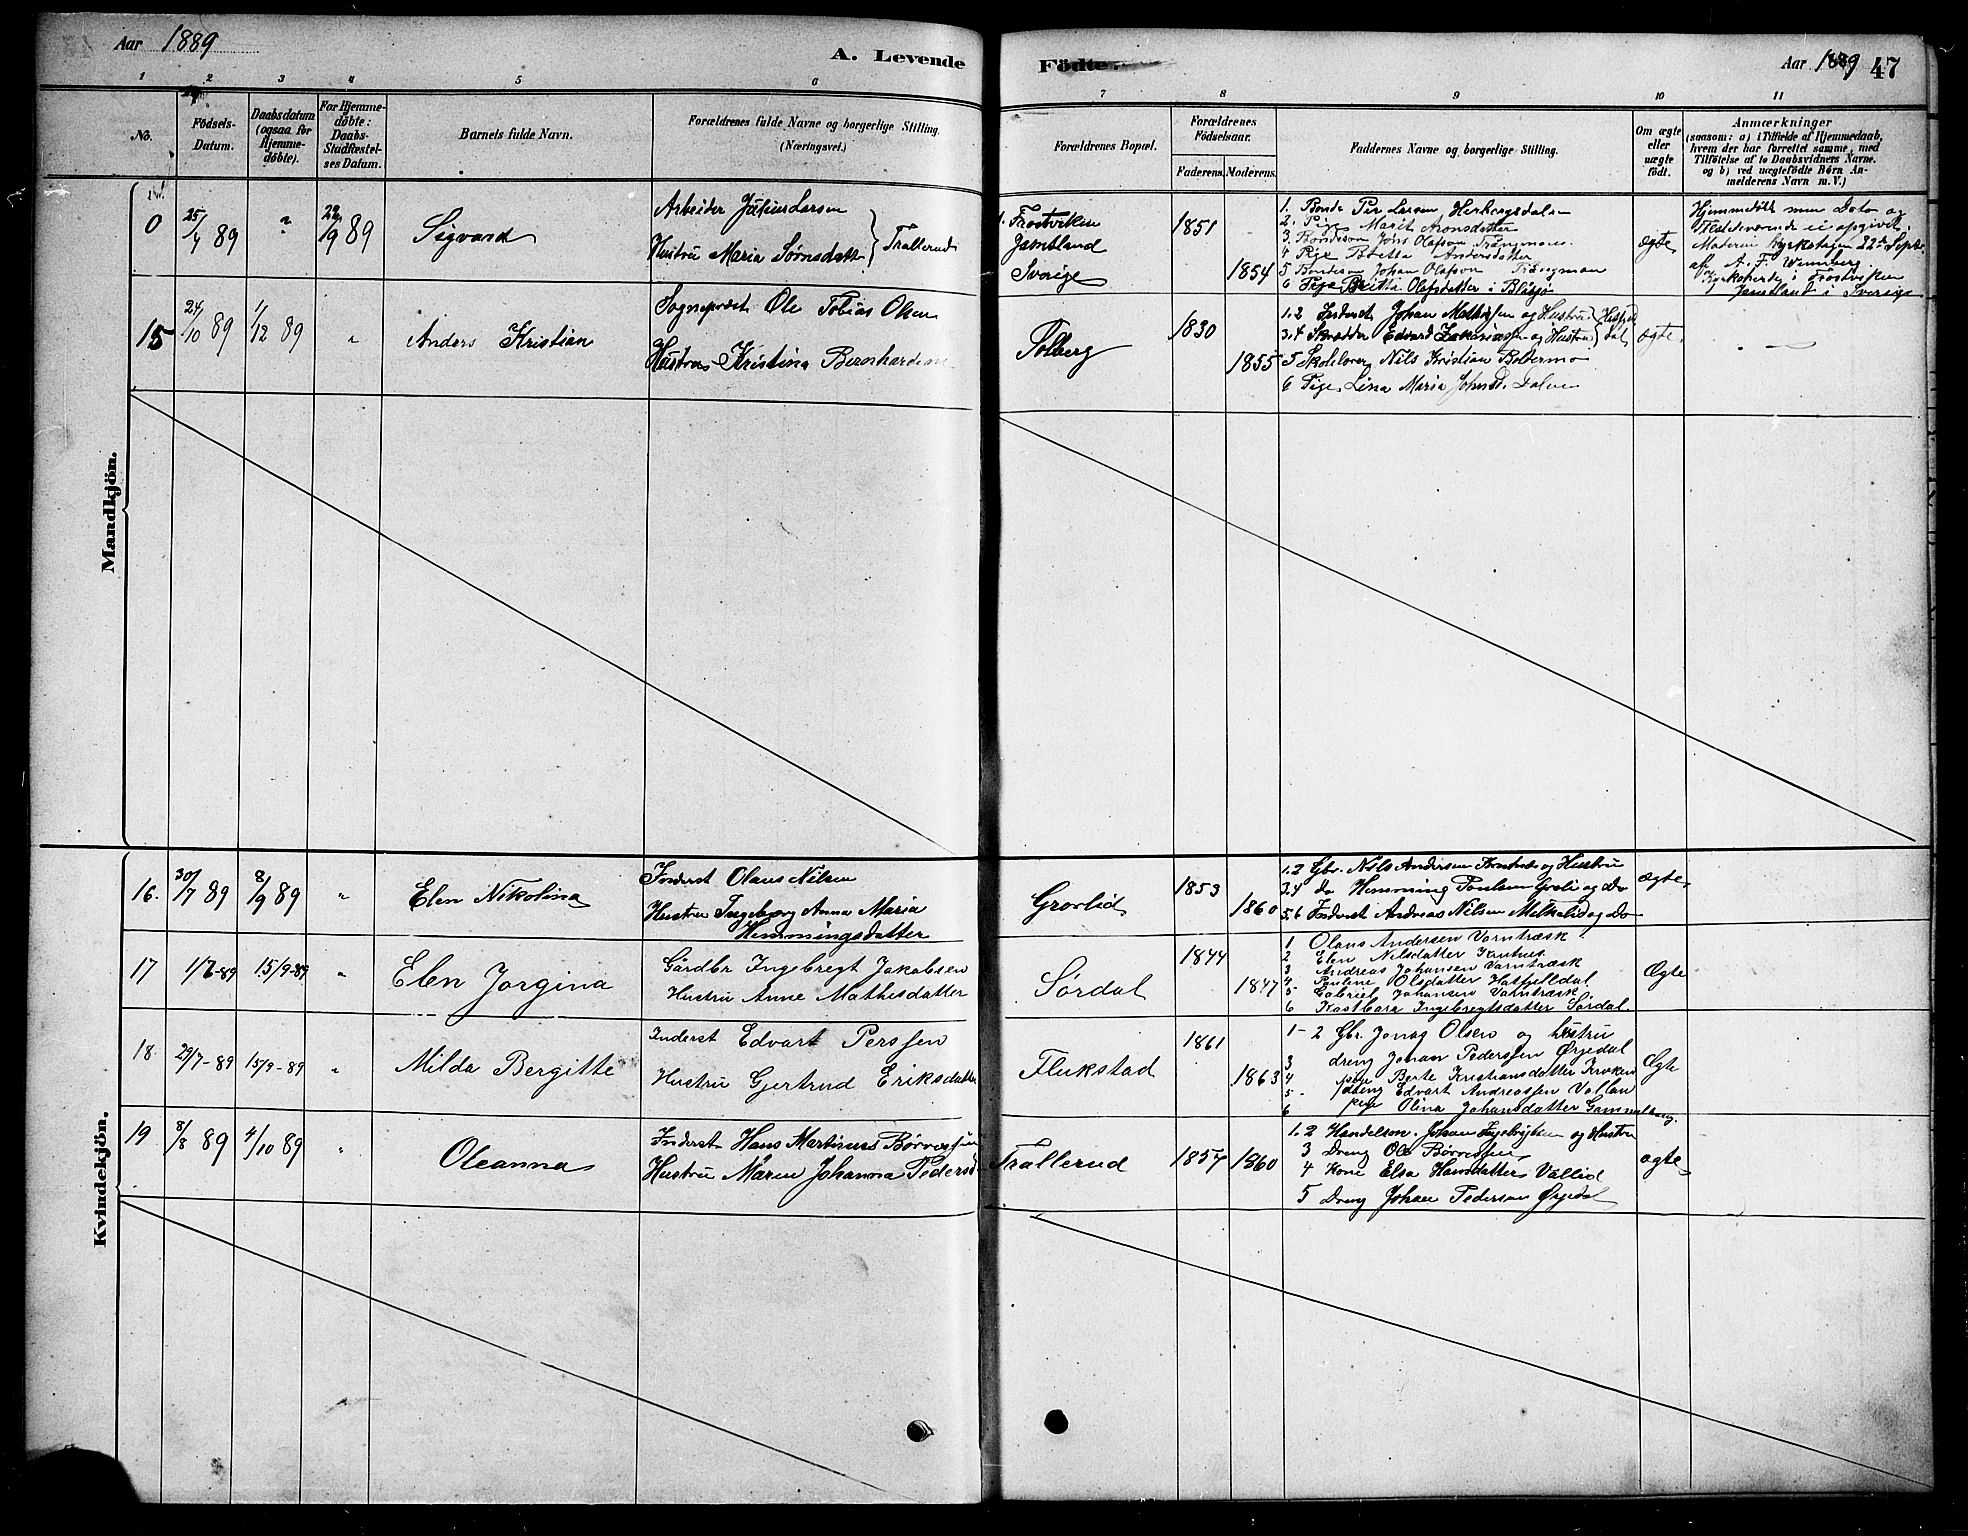 Aar 1889
A. Levende
Födte.
Aar 1889 47
1 2 3 4 5 6 7 8 9 10 11
No.
Födsels-Datum.
Daabsdatum (ogsaa for Hjemme-döbte).
For Hjemme-döbte: Daabs-Stadfæstel-ses Datum.
Barnets fulde Navn.
Forældrenes fulde Navne og borgerlige Stilling.
(Næringsvei.)
Forældrenes Bopæl.
Forældrenes Födselsaar.
Faderens. Moderens.
Faddernes Navne og borgerlige Stilling.
Om ægte eller uægte födt.
Anmærkninger
(saasom: a) i Tilfælde af Hjemmedaab,
hvem der har forrettet samme, med
Tilföielse af to Daabsvidners Navne.
og b) ved uægtefödte Börn An-
melderens Navn m. V.)
Mandkjön.
0 25/7 89 " 22/9 89 Sigvard
Arbeider Julius Larsen
Hustru Maria Sørnsdatter } Trallerud
Frostviken
Jämtland
Sverige
1851
1854
1. Bonde Per Larsen Herbergsdalen
2. Pige Marit Aronsdatter
3. Bondesøn Jöns Olofson Trångmon
4 Pige Beretta Andersdatter
5 Bondesøn Johan Olofson Trångman
6 Pige Britta Olofsdatter i Blåsjø
ægte
Hjemmedøbt men Dato og
Vedkommende ei opgivet.
Moderen kyrktagen 22de Septbr
af A. F. Wennberg
Kyrkoherde i Frostviken
Jämtland i Sverige
15 24/10 89 1/12 89 " Anders Kristian
Sogneprest Ole Tobias Olsen
Hustru Kristina Bernhardine
Tolberg
1830
1855
1.2 Inderst Johan Mathisen og Hustru
3.4 Skrædder Edvard Zakariassen og Hustru } Hatfjelddal
5 Skolelærer Nils Kristian Boltermo
6 Pige Lina Maria Johnsd. Dalen
ægte.
—
Kvindekjön.
16. 30/7 89 8/9 89 " Elen Nikolina
Inderst Olaus Nilsen
Hustru Ingeborg Anna Maria
Hemmingsdatter
Grovlid
1853
1860
1.2 Gbr. Nils Andersen Krutnes og Hustru
3.4 do Hemming Poulsen Groli og Do
5.6 Inderst Andreas Nilsen Mikkalid og Do
ægte.
17 1/7-89 15/9-89 " Elen Jorgina
Gårdbr Ingebregt Jakobsen
Hustru Anne Mathisdatter
Sørdal
1844
1847
1 Olaus Andersen Varntræsk
2 Elen Nilsdatter Krutnes
3 Andreas Johansen Varntræsk
4. Pauline Olsdatter Hatfjelldal
5- Gabriel Johansen Varntræsk
6 Kostbara Ingebregtsdatter Sørdal.
Ægte
18. 29/7-89 15/9-89 " Milda Bergitte
Inderst Edvart Perssen
Hustru Gjertrud Eriksdatter
Flukstad
1861
1863
1- 2 Gbr. Jonas Olsen og hustru
3 dreng Johan Pederssen Ørjedal
4 pige Berte Kristiansdatter Kroken
5- dreng Edvart Andreassen Vollan
6 pige Olina Johansdatter Gammelhaug.
Ægte
19 8/8 89 4/10 89 " Oleanna
Inderst Hans Martinus Børressen
Hustru Maren Johanna Pedersd
Trallerud
1857
1860
1.2 Handelsm. Johan Ingebrigtsen og Hustru
3 Dreng Ole Børressen
4 Kone Elsa Hansdatter Vallid
5 Dreng Johan Pedersen Ørjedal
ægte